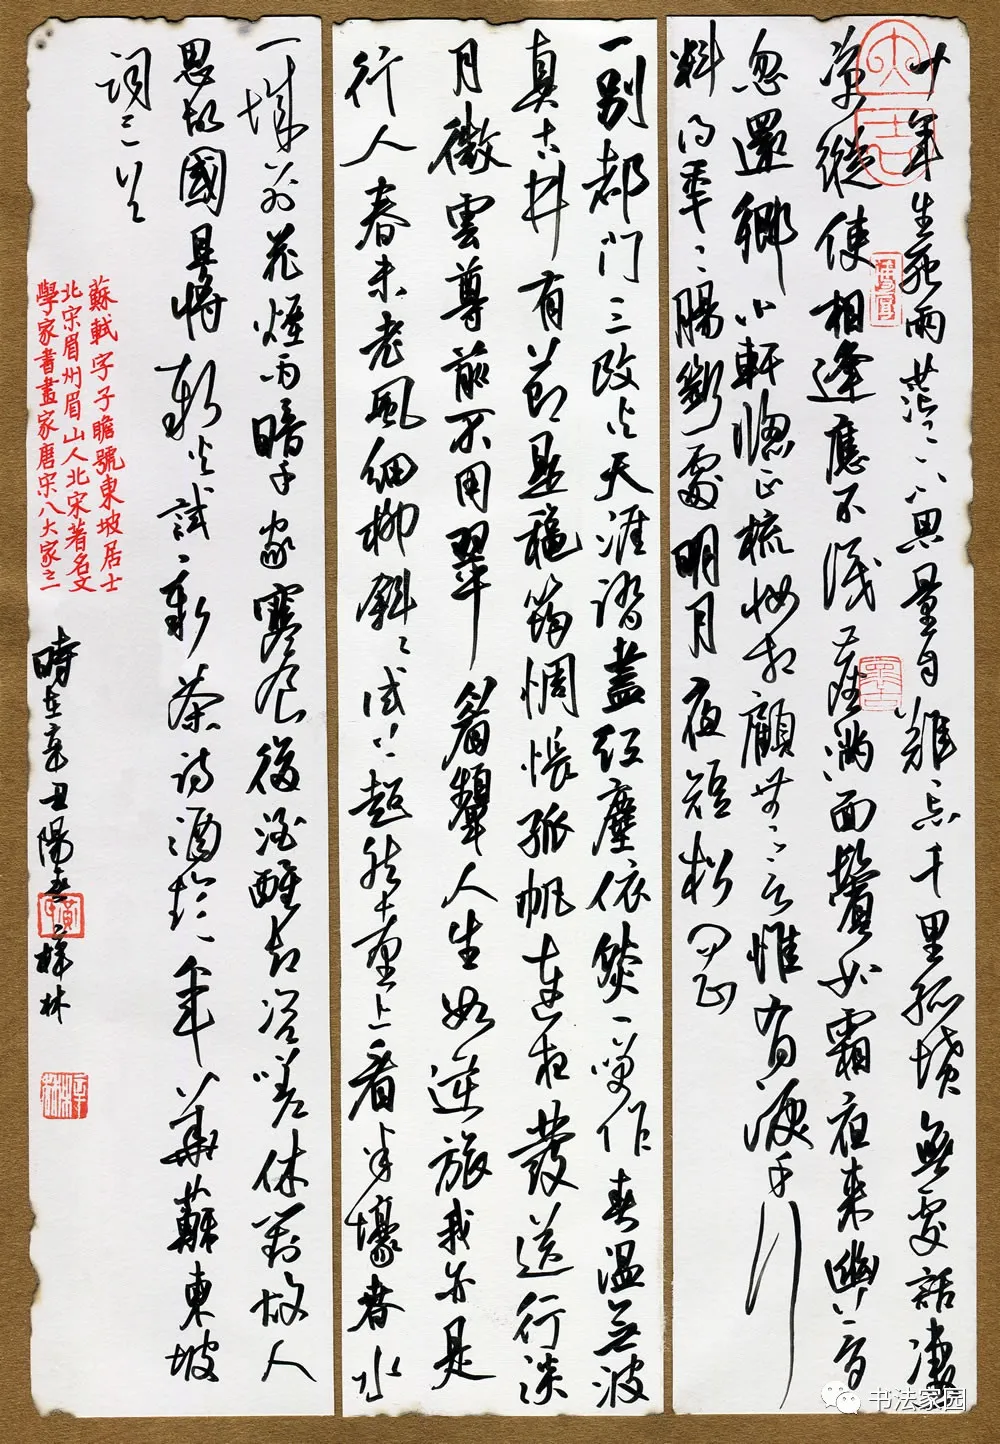 十年生死兩茫〻不思量自難忘千里孤墳無處話淒
涼縱使相逢應不識塵滿面鬢如霜夜來幽夢
忽還鄉小軒窗正梳妝相顧無〻言惟有淚千行
料得年〻腸斷處明月夜短松岡
一別都門三改火天涯踏盡紅塵依然一笑作春溫無波
真古井有節是秋筠惆悵孤帆連夜發送行淡
月微雲尊前不用翠眉顰人生如逆旅我亦是
行人春未老風細柳斜〻試上超然臺上看半壕春水
一城花煙雨暗千家寒食後酒醒却咨嗟休對故人
思故國且將新火試〻新茶詩酒趁年華蘇東坡
詞三首
蘇軾字子瞻號東坡居士
北宋眉州眉山人北宋著名文
學家書畫家唐宋八大家之一
時在辛丑陽春祥林
书法家园